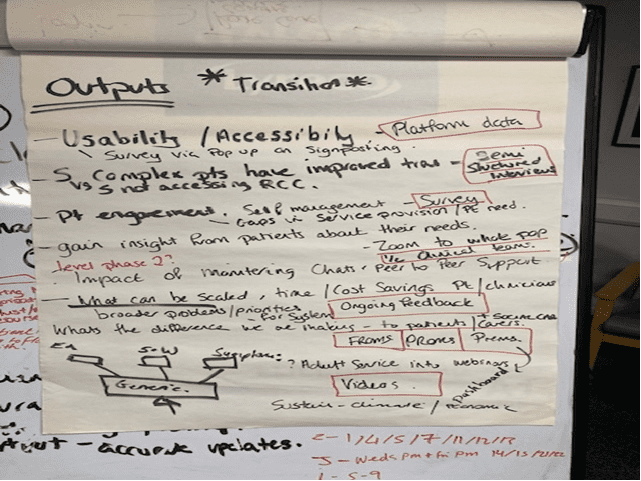 Outputs * Transition *
- Usability / Accessibility - Platform data
\ Survey via Pop up on Signposting.
- 5 Complex pts have improved trans - Semi Structured Interviews
vs 5 not accessing RCC.
- Pt engagement. Self management - Survey
- Gaps in Service provision / Pt need.
- gain insight from patients about their needs.
- Zoom to whole pop
level phase 2?
I/c clinical team.
- Impact of monitering Chats, Peer to Peer Support
- What can be scaled, time / Cost Savings Pt / clinician
broader problems/priorities - For System
Ongoing feedback
Whats the difference we are making - to patients / carers.
+ social care
FROMS PROMS Prems
SW
? Adult Service into webinars
Generic
Videos.
Dashboard
Sustain - climate / economic
- accurate updates.
2 - 1/4/5/7/11/12/13